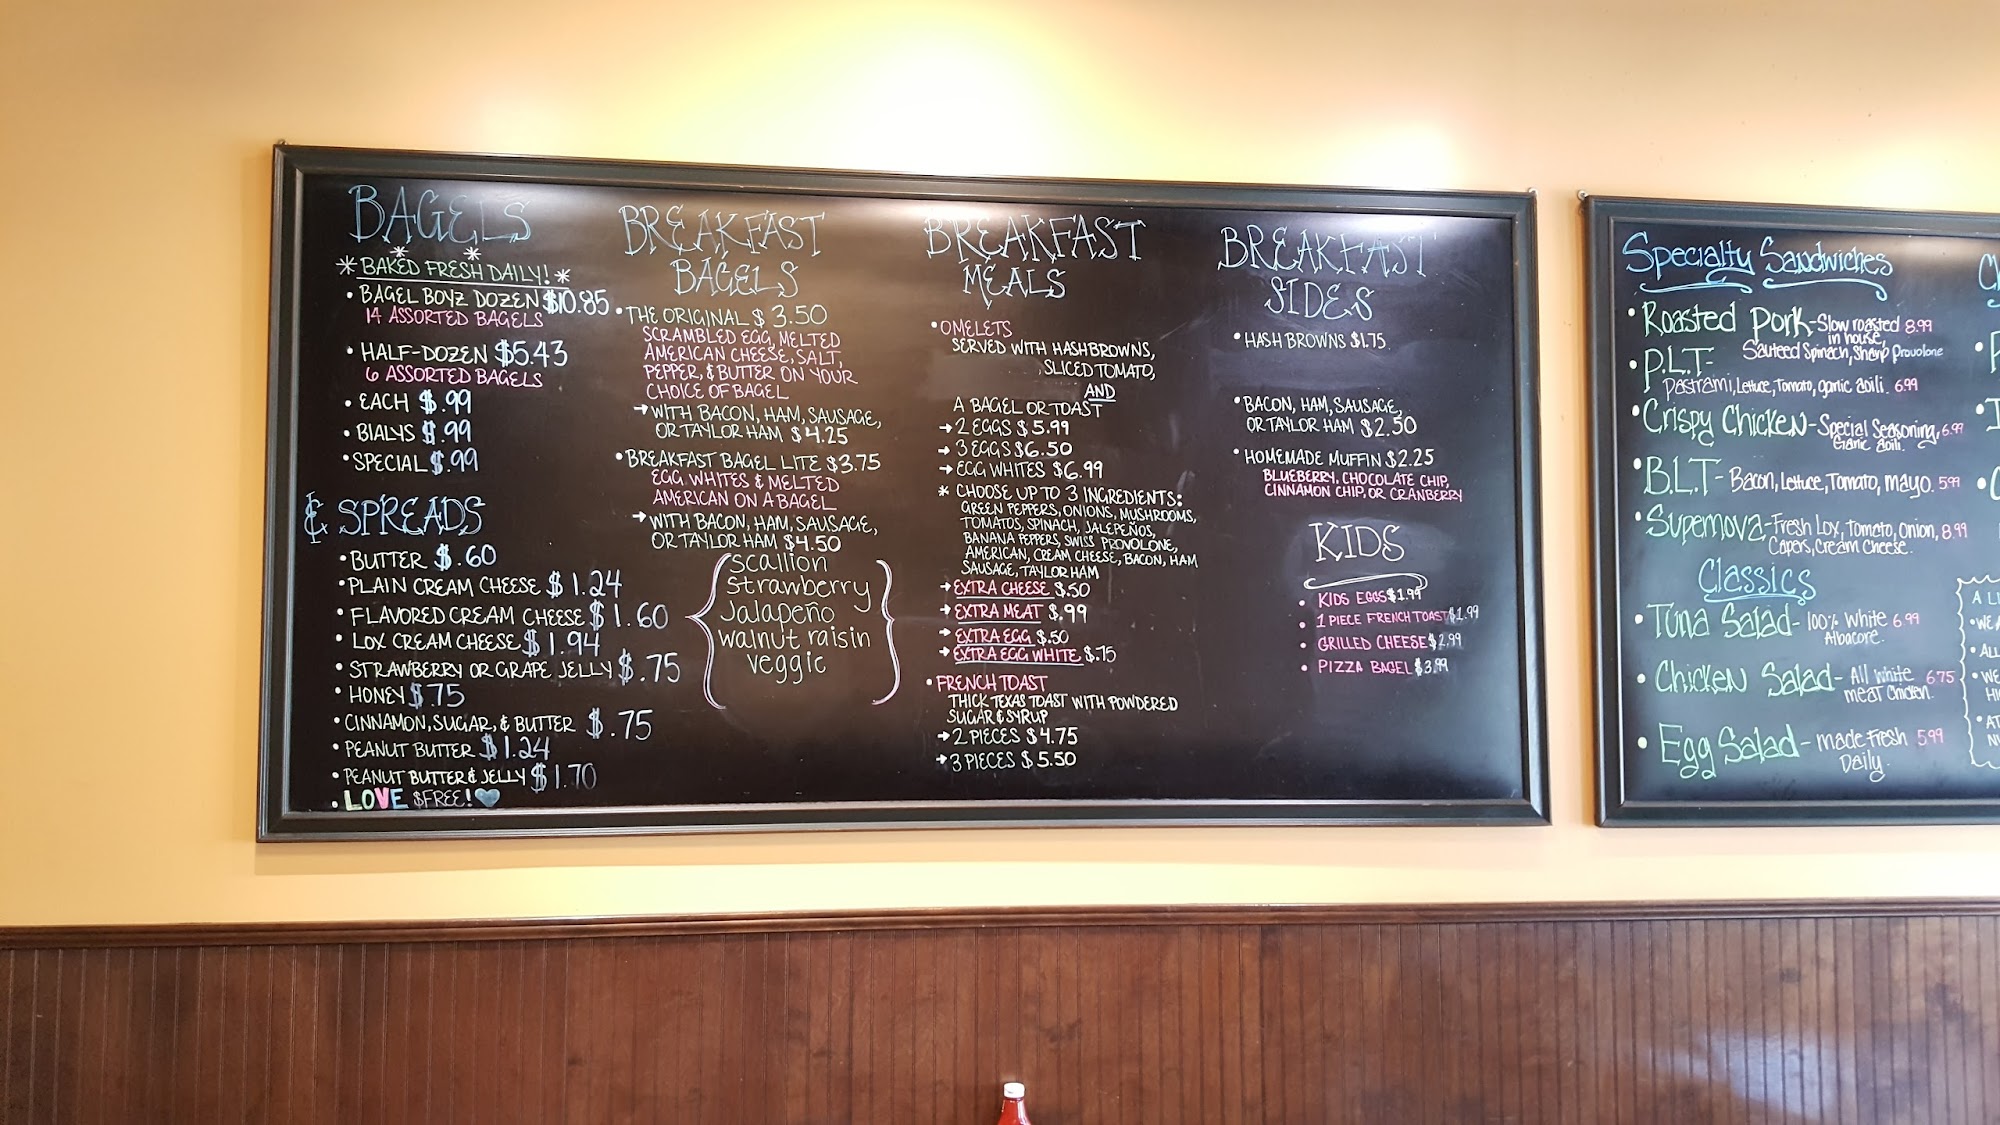 BAGELS
*BAKED FRESH DAILY!*
• BAGEL BOYZ DOZEN $10.85
14 ASSORTED BAGELS
• HALF-DOZEN $5.43
6 ASSORTED BAGELS
• EACH $.99
• BIALYS $.99
• SPECIAL $.99
& SPREADS
• BUTTER $.60
• PLAIN CREAM CHEESE $1.24
• FLAVORED CREAM CHEESE $1.60
• LOX CREAM CHEESE $1.94
• STRAWBERRY OR GRAPE JELLY $.75
• HONEY $.75
• CINNAMON, SUGAR, & BUTTER $.75
• PEANUT BUTTER $1.24
• PEANUT BUTTER & JELLY $1.70
• LOVE $FREE!
BREAKFAST
BAGELS
• THE ORIGINAL $3.50
SCRAMBLED EGG, MELTED
AMERICAN CHEESE, SALT,
PEPPER, & BUTTER ON YOUR
CHOICE OF BAGEL
→ WITH BACON, HAM, SAUSAGE,
OR TAYLOR HAM $4.25
• BREAKFAST BAGEL LITE $3.75
EGG WHITES & MELTED
AMERICAN ON A BAGEL
→ WITH BACON, HAM, SAUSAGE,
OR TAYLOR HAM $4.50
scallion
strawberry
Jalapeño
walnut raisin
veggie
BREAKFAST
MEALS
• OMELETS
SERVED WITH HASHBROWNS,
SLICED TOMATO,
AND
A BAGEL OR TOAST
→ 2 EGGS $5.99
→ 3 EGGS $6.50
→ EGG WHITES $6.99
* CHOOSE UP TO 3 INGREDIENTS:
GREEN PEPPERS, ONIONS, MUSHROOMS,
TOMATOS, SPINACH, JALEPEÑOS,
BANANA PEPPERS, SWISS PROVOLONE,
AMERICAN, CREAM CHEESE, BACON, HAM
SAUSAGE, TAYLOR HAM
→ EXTRA CHEESE $.50
→ EXTRA MEAT $.99
→ EXTRA EGG $.50
→ EXTRA EGG WHITE $.75
• FRENCH TOAST
THICK TEXAS TOAST WITH POWDERED
SUGAR & SYRUP
→ 2 PIECES $4.75
→ 3 PIECES $5.50
BREAKFAST
SIDES
• HASH BROWNS $1.75
• BACON, HAM, SAUSAGE,
OR TAYLOR HAM $2.50
• HOMEMADE MUFFIN $2.25
BLUEBERRY, CHOCOLATE CHIP,
CINNAMON CHIP, OR CRANBERRY
KIDS
• KIDS EGGS $1.99
• 1 PIECE FRENCH TOAST $1.99
• GRILLED CHEESE $2.99
• PIZZA BAGEL $3.99
Specialty Sandwiches
• Roasted Pork - Slow roasted 8.99
in house,
Sauteed Spinach, Sharp Provolone
• P.L.T -
Pastrami, Lettuce, Tomato, garlic aoili. 6.99
• Crispy Chicken - Special Seasoning, 6.99
Garlic aoili.
• B.L.T - Bacon, Lettuce, Tomato, mayo. 5.99
• Supernova - Fresh Lox, Tomato, Onion, 8.99
Capers, Cream Cheese.
Classics
• Tuna Salad - 100% White 6.99
Albacore.
• Chicken Salad - All white 6.75
meat Chicken.
• Egg Salad - made Fresh 5.99
Daily.